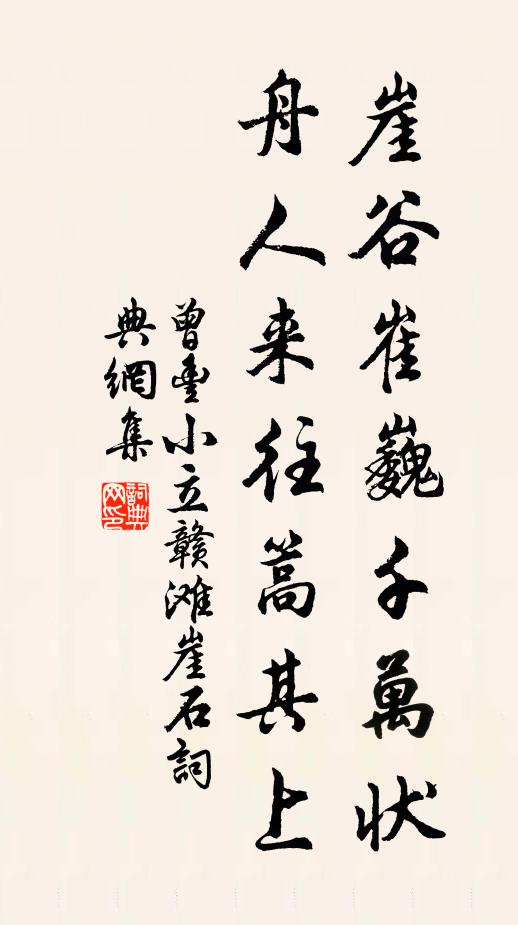 崖谷崔巍千萬状
舟人来往篙其上
曾豊小立贛滩崖石詞
典網集
詞典网印